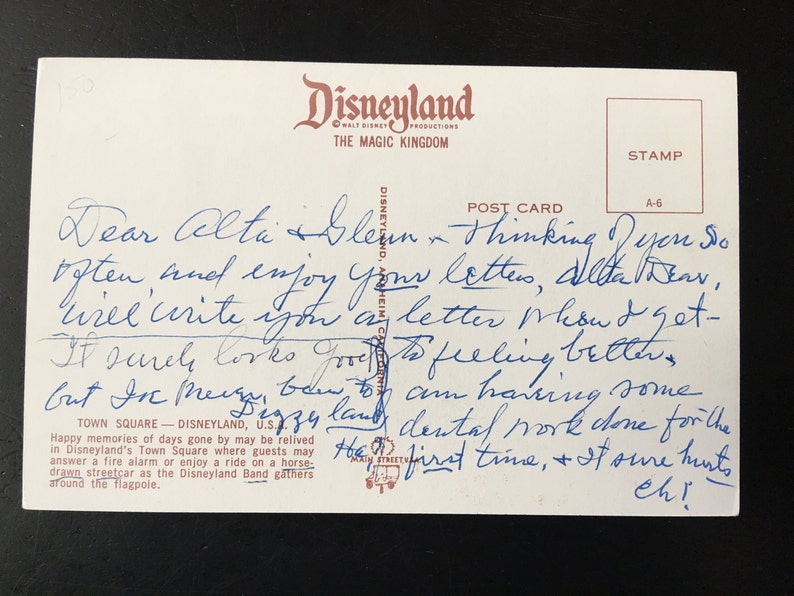 150
Disneyland
© WALT DISNEY PRODUCTIONS
THE MAGIC KINGDOM
STAMP
A-6
POST CARD
DISNEYLAND, ANAHEIM CALIFORNIA
Dear Alta & Glenn & Thinking of you so
often and enjoy your letters, Alta Dear,
will write you a letter when I get
to feeling better,
am having some
dental work done for the
first time, & it sure hurts
eh!
It surely looks good
but I've never been to
Dizzyland
Ha!
TOWN SQUARE — DISNEYLAND, U.S.A.
Happy memories of days gone by may be relived
in Disneyland's Town Square where guests may
answer a fire alarm or enjoy a ride on a horse-
drawn streetcar as the Disneyland Band gathers
around the flagpole.
MAIN STREET, U.S.A.